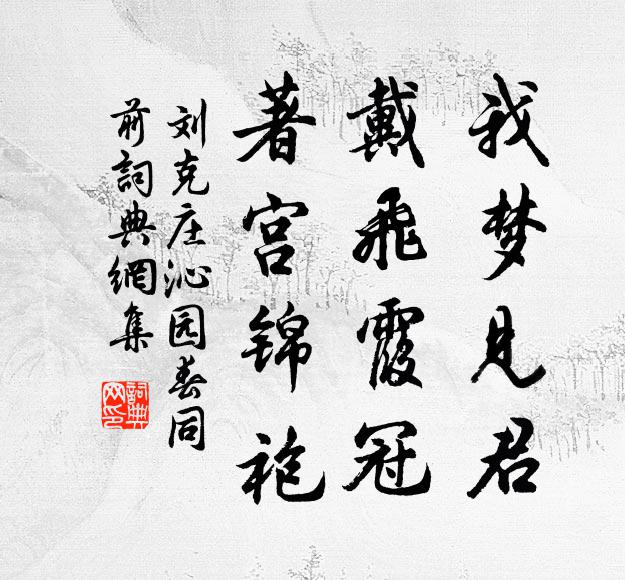 我梦见君
戴飛霞冠
著宫锦袍
刘克庄沁园春同
前詞典網集
詞典
网印